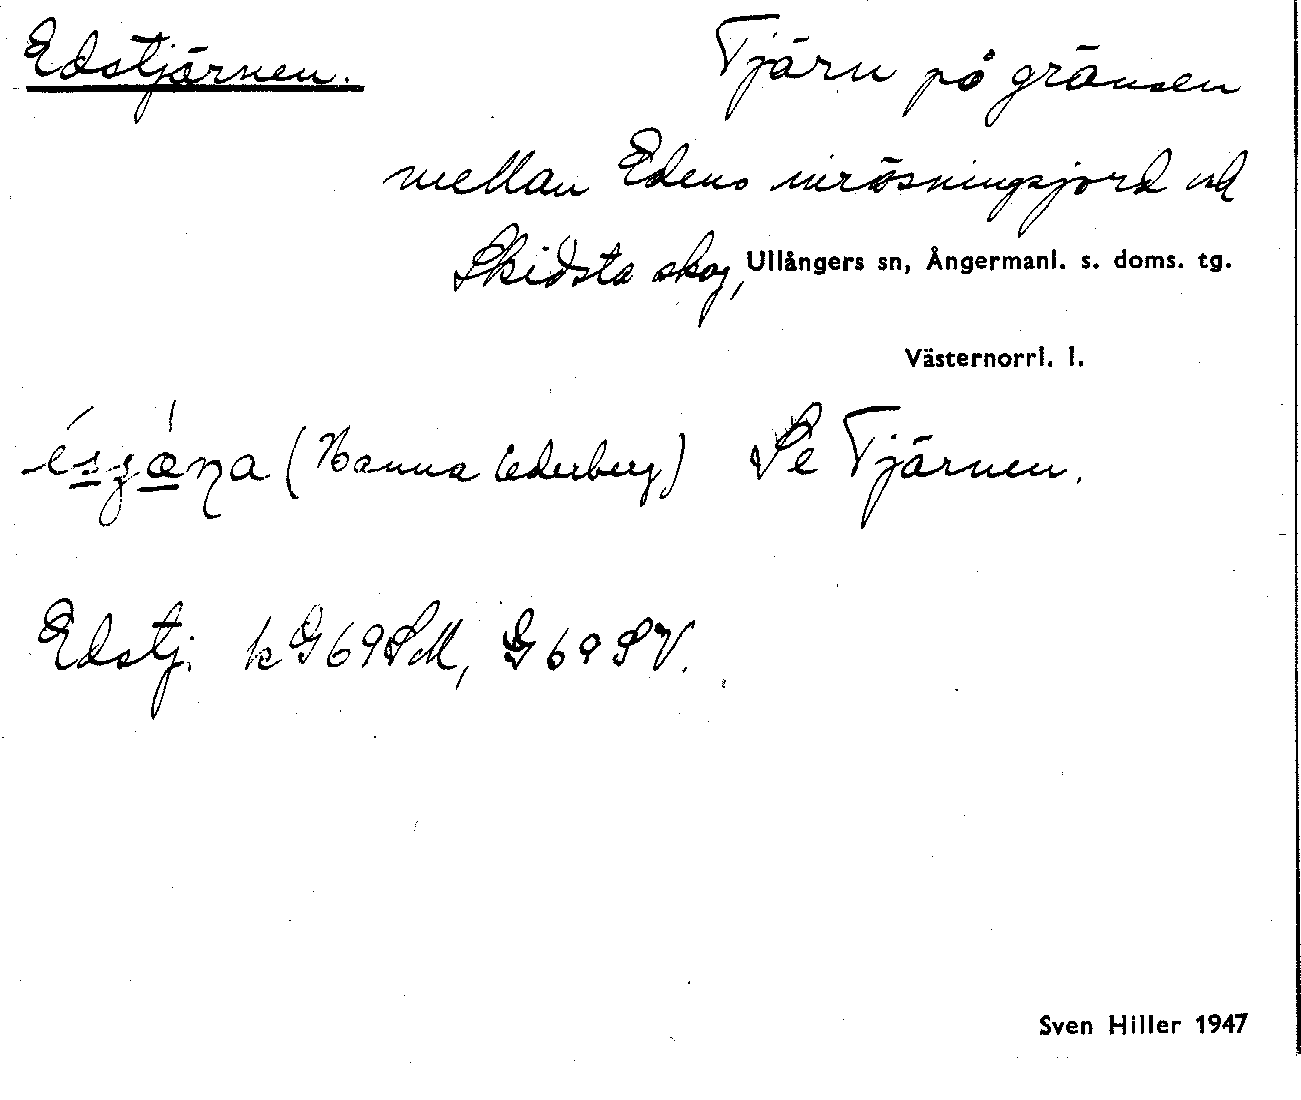 Edstjärnen.
Tjärn på gränsen
mellan Edens inrösningsjord och
Skidsta skog, Ullångers sn, Ångermanl. s. doms. tg.
Västernorrl. l.
(Hanna Cederberg) Se Tjärnen.
Edstj. kG69SM, G69SV.
Sven Hiller 1947